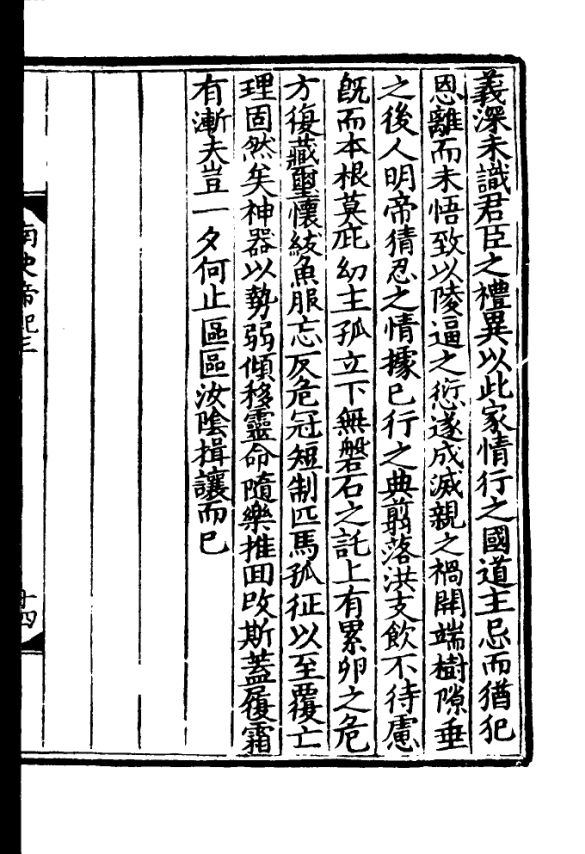 義深未識君臣之禮異以此家情行之國道主忌而猶犯
恩離而未悟致以陵逼之愆遂成滅親之禍開端樹隙垂
之後人明帝猜忍之情據已行之典翦落洪支飲不待慮
旣而本根莫庇幼主孤立下無磐石之託上有累卵之危
方復藏璽懷紱魚服忘反危冠短制匹馬孤征以至覆亡
理固然矣神器以勢弱傾移靈命隨樂推回改斯蓋履霜
有漸夫豈一夕何止區區汝陰揖讓而已
南史帝紀三
十四